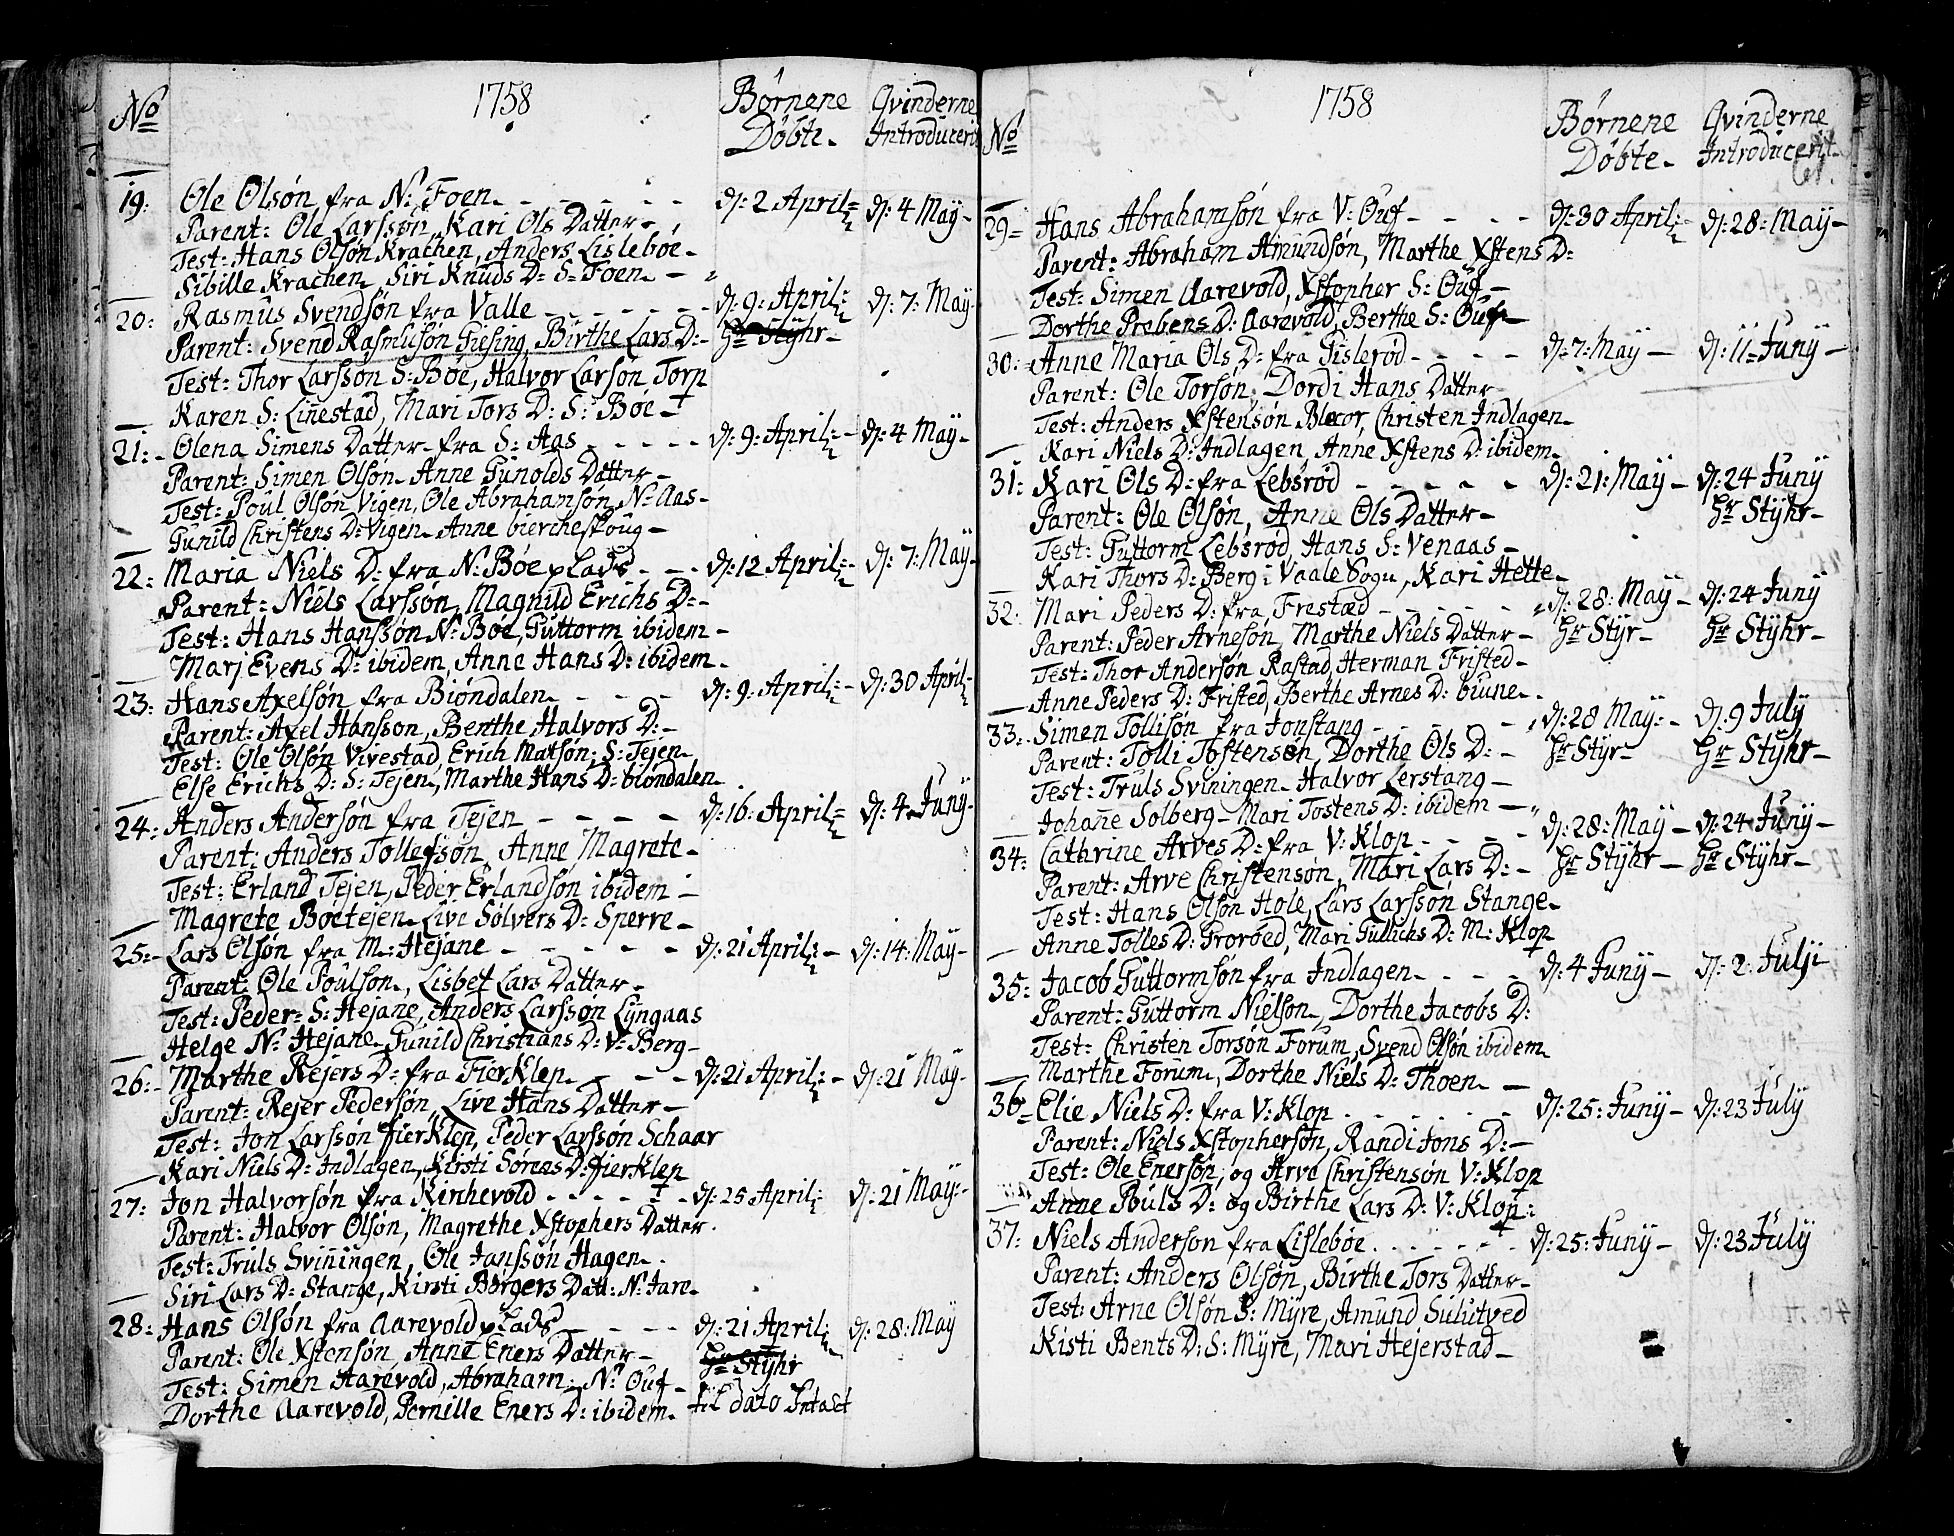 No 1758 Børnene Døbte Qvinderne Introducerit
19: Ole Olsøn fra N: Foen d: 2 April d: 4 May
Parent: Ole Larssøn, Kari Ols Datter
Test: Hans Olsøn Krachen, Anders Lislebøe
Sibille Krachen, Siri Knuds D: S: Foen
20: Rasmus Svendsøn fra Valle d: 9: April d: 7: May
Parent: Svend Rasmusøn Giesing, Birthe Lars D: Hr Styhr
Test: Thor Larssøn S: Bøe, Halvor Larsøn Torp
Karen S: Linestad, Mari Tors D: S: Bøe
21: Olena Simens Datter fra S: Aas d: 9: April d: 4 May
Parent: Simen Olsøn Anne Gunolds Datter
Test: Poul Olsøn Vigen, Ole Abrahamsøn N: Aas
Gunild Christens D: Vigen Anne biercheskoug
22: Maria Niels D: fra N: Bøe plads d: 12 April d: 7: May
Parent: Niels Larssøn, Magnild Erichs D:
Test: Hans Hanssøn N: Bøe, Guttorm ibidem
Mari Evens D: ibidem, Anne Hans D: ibidem
23: Hans Axelsøn fra Biøndalen d: 9: April d: 30 April
Parent: Axel Hansson, Benthe Halvors D:
Test: Ole Olsøn Vivestad, Erich Matsøn S: Tejen
Else Erichs D: S: Tejen, Marthe Hans D: biøndalen
24: Anders Andersøn fra Tejen d: 16: April d: 4 Juny
Parent: Anders Tollefsøn, Anne Magrete
Test: Erland Tejen, Peder Erlandsøn ibidem
Magrete Boetejen Live Sølvers D: Sperre
25: Lars Olsøn fra M: Hejane d: 21 April d: 14: May
Parent: Ole Poulson, Lisbet Lars Datter
Test: Peder S: Hejane, Anders Larssøn Lyngaas
Helge N: Hejane Gunild Christians D: V: Berg
26: Marthe Rejers D: fra Fierklep d: 21 April d: 21 May
Parent: Rejer Pedersøn, Live Hans Datter
Test: Jon Larssøn fierklep, Peder Larssøn Schaar
Kari Niels D: Indlagen, Kirsti Sørens D: fierklep
27: Jon Halvorsøn fra Kirchevold d: 25 April d: 21 May
Parent: Halvor Olsøn, Magrethe Xstophers Datter
Test: Truls Sviningen, Ole Janssøn Hagen
Siri Lars D: Stange, Kirsti Børgers Datt: N: Jare
28: Hans Olsøn fra Aarevold plads d: 21 April d: 28: May
Parent: Ole Xstensøn, Anne Eners Datter Hr Styhr
Test: Simen Aarevold, Abraham N: Ouf til dato
Dorthe Aarevold, Pernille Eners D: ibidem
No 1758 Børnene Døbte Qvinderne Introducerit
29 Hans Abrahamsøn fra V: Ouf d: 30 April d: 28: May
Parent: Abraham Amundsøn, Marthe Xstens D:
Test: Simen Aarevold, Xstopher S: Ouf
Dorthe Prebens D: Aarevold, Berthe S: Ouf
30: Anne Maria Ols D: fra Gislerød d: 7: May d: 11 Juny
Parent: Ole Torsøn, Dordi Hans Datter
Test: Anders Xstensøn Christen Indlagen
Kari Niels D: Indlagen, Anne Xstens D: ibidem
31: Kari Ols D: fra Lebsrød d: 21: May d: 24 Juny
Parent: Ole Olsøn, Anne Ols Datter Hr Styhr
Test: Guttorm Lebsrød, Hans S: Venaas
Kari Thors D: Berg i Vaale Sogn, Kari Hette
32: Mari Peders D: fra Frestad d: 28: May d: 24 Juny
Parent: Peder Arnesøn, Marthe Niels Datter Hr Styr Hr Styhr
Test: Thor Andersøn Rastad, Herman Fristed
Anne Peders D: Fristed, Berthe Arnes D: biune
33: Simen Tollisøn fra Jonstang d: 28 May d: 9 July
Parent: Tolli Tostensøn, Dorthe Ols D: Hr Styr Hr Styhr
Test: Truls Sviningen Halvor Lerstang
Johane Solberg Mari Tostens D: ibidem
34: Cathrine Arves D: fra V: Klop d: 28: May d: 24 Juny
Parent: Arve Christensøn, Mari Lars D: Hr Styhr Hr Styhr
Test: Hans Olsøn Hole, Lars Larssøn Stange
Anne Tolles D: Grorøed, Mari Gullichs D: M: Klop
35: Jacob Guttormsøn fra Indlagen d: 4 Juny d: 2: July
Parent: Guttorm Nielson, Dorthe Jacobs D:
Test: Christen Torsøn Forum, Svend Olsøn ibidem
Marthe Forum, Dorthe Niels D: Thoen
36 Elie Niels D: fra V: Klop d: 25: Juny d: 23 July
Parent: Niels Xstophersøn, Randi Jons D:
Test: Ole Enersøn, og Arve Christensøn V: Klop
Anne Pouls D: og Birthe Lars D: V: Klop
37: Niels Anderson fra Lislebøe d: 25: Juny d: 23 July
Parent: Anders Olsøn, Birthe Tors Datter
Test: Arne Olsøn S: Myre, Amund Sulutved
Kisti Bents D: S: Myre, Mari Hejerstad